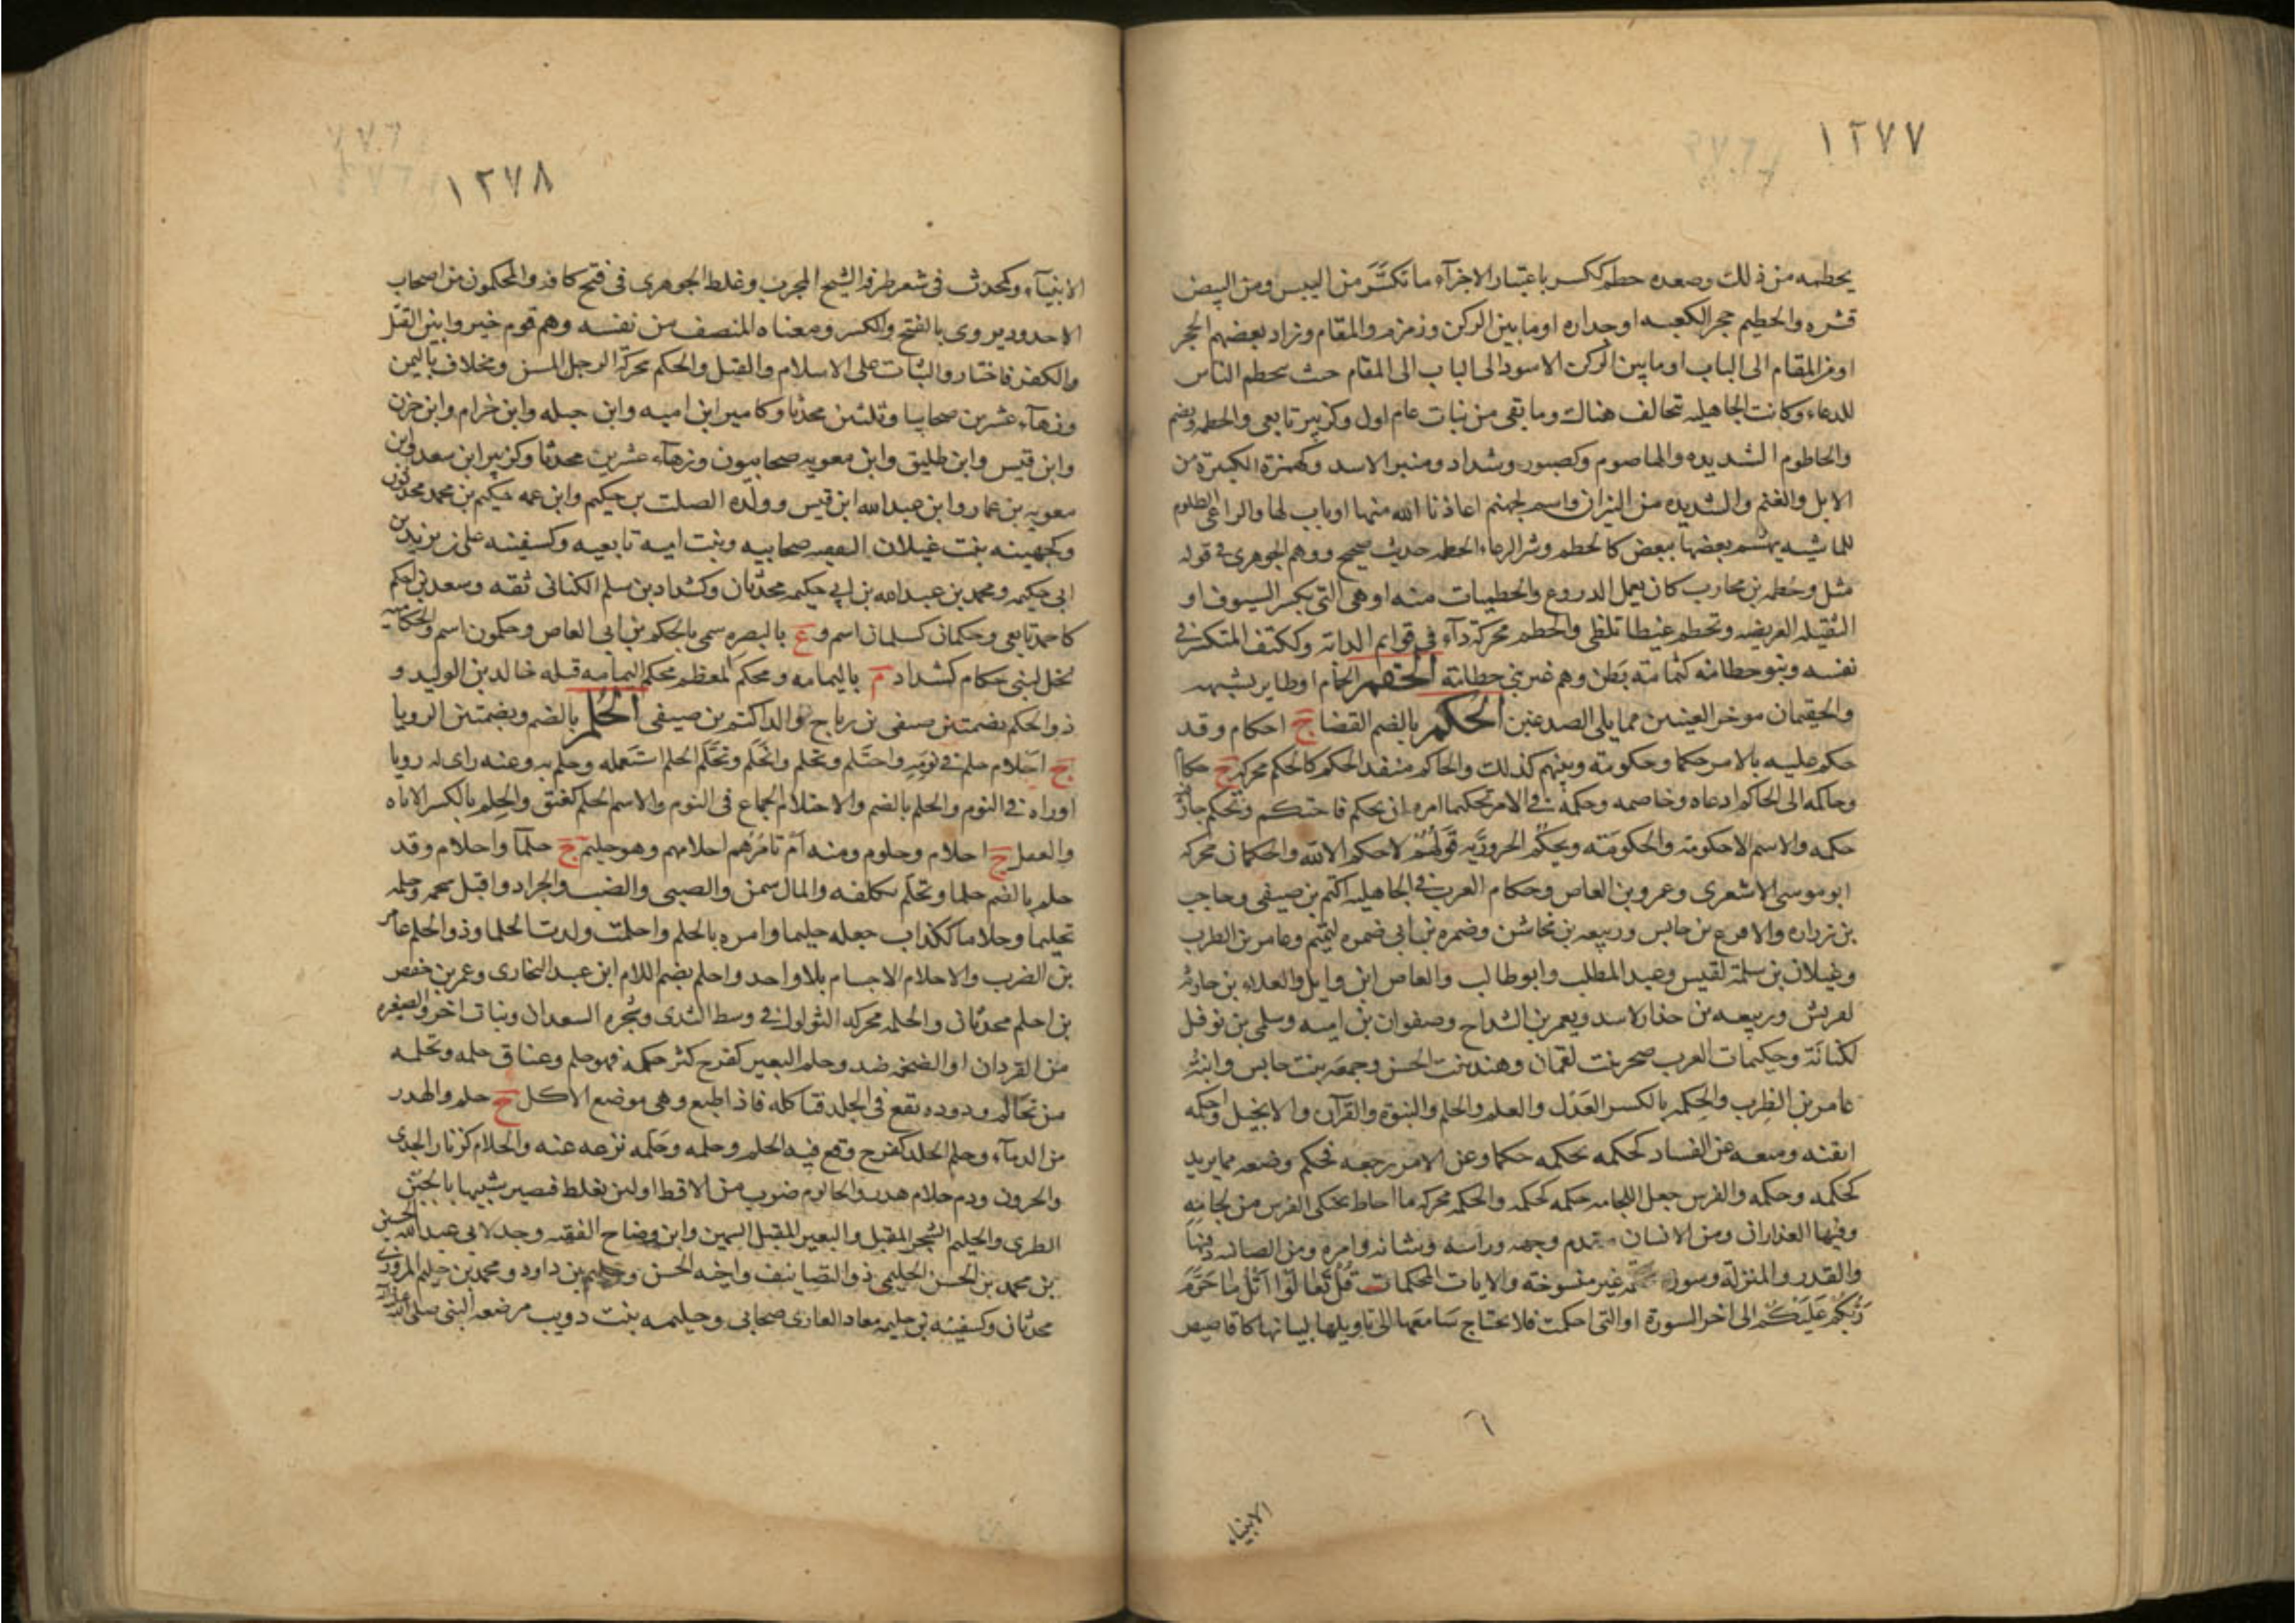 ١٢٧٧
يحطمه من ذلك وصعده حطم ككسر باعتبار الاجزآء ما تكسَّرَ من اليبس ومن البيض
قشره والحطيم حجر الكعبه او جداره او ما بين الركن وزمزم والمقام وزاد بعضهم الحجر
او من المقام الى الباب او ما بين الركن الاسود الى الباب الى المقام حث يحطم الناس
للدعاء وكانت الجاهليه تحالف هناك وما بقى من نبات عام اول وكزبير تابعى والحطمه ويضم
والحاطوم الشديده والهاصوم وكصبور وشداد ومنبر الاسد وكهمزة الكبيرة من
الابل والغنم والشديده من النيران واسم لجهنم اعاذنا الله منها او باب لها والراعى الظلوم
للماشيه يهشم بعضها ببعض كالحطم وشر الرعاء الحطمه حديث صحيح ووهم الجوهرى فى قوله
مثل وحُطمه بن محارب كان يعمل الدروع والحطميات منه او هى التى تكسر السيوف او
الثقيله العريضه وتحطم غيظا تلظى والحطم محركة دآء فى قوايم الدابه وككتف المتكسر فى
نفسه وبنو حطامه كثمامة بَطن وهم غير بنى حطامة الحقم الحمام او طاير يشبهه
والحقيمان موخر العينين مما يلى الصدغين الحكم بالضم القضا ج احكام وقد
حكم عليه بالامر حكما وحكومة وبينهم كذلك والحاكم منفذ الحكم كالحكم محركه ج حكام
وحاكمه الى الحاكم ادعاه وخاصمه وحكمه فى الامر تحكيما امره ان يحكم فاحتكم وتحكم جاز
حكمه والاسم الاحكومة والحكومَة وتحكم الحروريَّه قَولهُم لا حكم الا لله والحكمان محركه
ابو موسى الاشعرى وعمرو بن العاص وحكام العرب فى الجاهليه اكثم بن صيفى وحاجب
بن زراره والاقرع بن حابس وربيعه بن مخاشن وضمره بن ابى ضمره لتميم وعامر بن الظرب
وغيلان بن سلمة لقيس وعبد المطلب وابو طالب والعاص ابن وايل والعلاء بن حارثه
لقريش وربيعه بن حذار لاسد ويعمر بن الشداح وصفوان بن اميه وسلمى بن نوفل
لكنانَة وحكيمات العرب صحر بنت لقمان وهند بنت الخس وجمعه بنت حابس وابنة
عامر بن الظرب والحِكمه بالكسر العَدل والعلم والحلم والنبوة والقرآن والانجيل واحكمه
اتقنه ومنعه عن الفساد كحكمه يحكمه حكما وعن الامر رجعه فحكم ومنعه مما يريد
كحكمه وحكمه والفرس جعل للجامه حكمه كحكمه والحكمه محركه ما احاط بحنكى الفرس من لجامه
وفيها العذاران ومن الانسان مقدم وجهه وراسه وشانه وامره ومن الضانه ذقنها
والقدر والمنزلة وسورة محكمه غير منسوخته والايات المحكمات قُل تعالَوا اَتلُ ما حَرَّمَ
رَبُّكُم عَلَيكُم الى اخر السورة او التى احكمت فلا يحتاج سَامعها الى تاويلها لبيانها كاقاصيص
٦
الانبياء
١٢٧٨
الانبيآء وكمحدث فى شعر طرفه الشيخ المجرب وغلط الجوهرى فى فتح كافه والمحكمون من اصحاب
الاخدود يروى بالفتح والكسر ومعناه المنصف من نفسه وهم قوم خيروا بين القتل
والكفر فاختاروا الثبات على الاسلام والقتل والحكم محركة الرجل المسن ومخلاف باليمن
وزهآء عشرين صحابيا وثلثين محدثا وكامير ابن اميه وابن جبله وابن حزام وابن حزن
وابن قيس وابن طليق وابن معويه صحابيون وزهآء عشرين محدثا وكزبير ابن سعد وابن
معويه بن عمار وابن عبد الله ابن قيس وولده الصلت بن حكيم وابن عمه حكيم بن محمد محدثون
وكجهينه بنت غيلان الثقفيه صحابيه وبنت اميه تابعيه وكسفينه على بن يزيد بن
ابى حكيمه ومحمد بن عبد الله بن ابى حكيمه محدثان وكشداد بن سلم الكنانى ثقه وسعد بن احكم
كاحمد تابعى وحكمان كسلمان اسم و ع بالبصره سمى بالحكم بن ابى العاص وحكمون اسم والحكاميه
نخل لبنى حكام كشداد م باليمامه ومحكم المعظم محكم اليمامه قتله خالد بن الوليد و
ذو الحكم بضمتين صيفى بن رباح والد اكثم بن صيفى الحلم بالضم وبضمتين الرويا
ج احلام حلم فى نومه واحتلم وتحلم وانحَلم وتحلم الحلم استعمله وحلم به وعنه راى له رويا
اوراه فى النوم والحلم بالضم والاحتلام الجماع فى النوم والاسم الحلم كعنق والحِلم بالكسر الاناه
والعقل ج احلام وحلوم ومنه اَم تامُرُهم احلامهم وهو حليم ج حلمآ واحلام وقد
حلم بالضم حلما وتحلم تكلفه والمال سمن والصبى والضب والجراد واقبل شحمه وحلمه
تحليما وحلاما ككذاب جعله حليما وامره بالحلم واحلمت ولدت الحلما وذو الحلم عامر
بن الضرب والاحلام الاجسام بلا واحد واحلم بضم اللام ابن عبيد البخارى وعمر بن حفص
بن احلم محدثان والحلمه محركه الثولول فى وسط الثدى وشجره السعدان ونبات اخر والصغيره
من القردان او الضخمه ضد وحلم البعير كفرح كثر حلمه فهو حلم وعناق حلمه وتحلمه
من تحالم ودوده تقع فى الجلد فتاكله فاذا طبع وهى موضع الاكل ج حلم والهدر
من الدمآء وحلم الجلد كفرح وقع فيه الحلم وحلمه وحَلمه نزعه عنه والحلام كزنار الجدى
والخروف ودم حلام هدر والحالوم ضرب من الاقط او لبن يغلظ فيصير شبيها بالجبن
الطرى والحليم الشحم المقبل والبعير المقبل السمين وابن وضاح الفقيه وجد لابى عبد الله الحسين
بن محمد بن الحسن الحليمى ذو التصانيف واخيه الحسن وحليم بن داود ومحمد بن حليم المروزى
محدثان وكسفينه بن حليمه معاد القارى صحابى وحليمه بنت دويب مرضعه النبى صلى الله